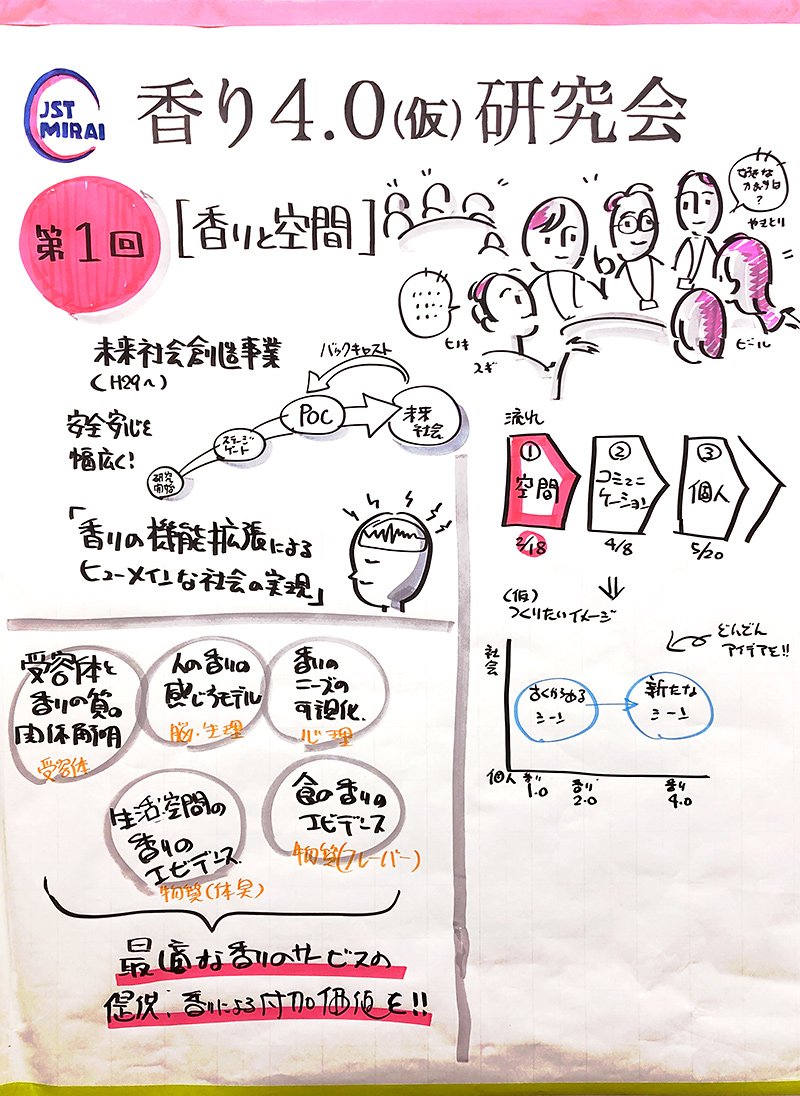 JST
MIRAI
香り4.0(仮)研究会
第1回
[香りと空間]
好きな
かおりは
?
やきとり
ヒノキ
スギ
ビール
未来社会創造事業
(H29〜)
バックキャスト
安全安心を
幅広く!
研究
開始
ステージ
ゲート
POC
未来
社会
「香りの機能拡張による
ヒューメインな社会の実現」
流れ
① 空間
② コミュニ
ケーション
③ 個人
2/18
4/8
5/20
(仮)
つくりたいイメージ
どんどん
アイデアを!!
社会
個人
古くからある
シーン
新たな
シーン
香り
1.0
香り
2.0
香り
4.0
受容体と
香りの質の
関係解明
受容体
人の香りの
感じるモデル
脳・生理
香りの
ニーズの
可視化
心理
生活空間の
香りの
エビデンス
物質(体臭)
食の香りの
エビデンス
物質(フレーバー)
最適な香りのサービスの
提供、香りによる付加価値を!!